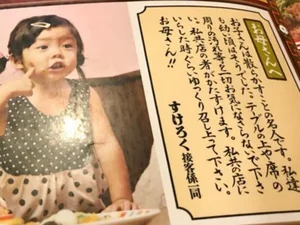 お母さんへ
お子さんは散らかすことの名人です。私達
も幼い頃はそうでした。テーブルの上や席の
周りの汚れ等を一切お気になさらないで下さ
い。私共店の者がかたずけます。私共の店に
いらした時ぐらいゆっくり召し上って下さい。
お母さん!!
すけろく 接客係一同